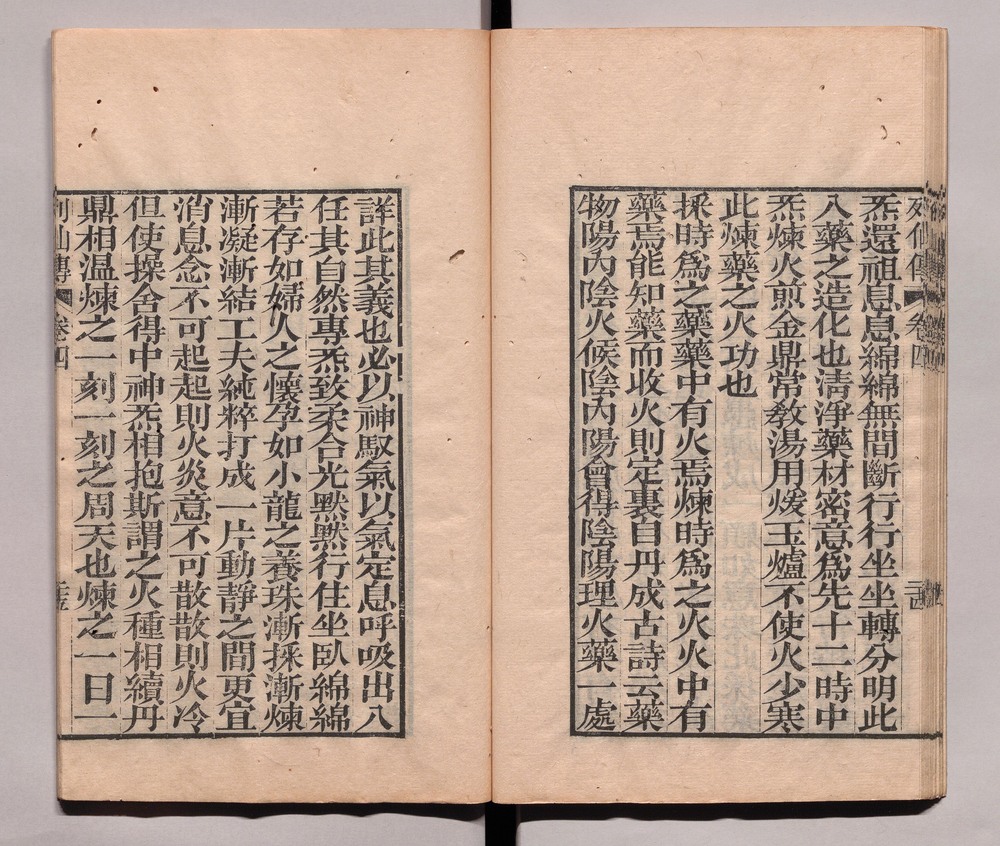 列仙傳 卷四
炁還祖息息綿綿無間斷行行坐坐轉分明此
入藥之造化也清淨藥材密意爲先十二時中
炁煉火煎金鼎常教湯用煖玉爐不使火少寒
此煉藥之火功也
採時爲之藥藥中有火焉煉時爲之火火中有
藥焉能知藥而收火則定裏自丹成古詩云藥
物陽內陰火候陰內陽會得陰陽理火藥一處
詳此其義也必以神馭氣以氣定息呼吸出入
任其自然專炁致柔合光默默行住坐臥綿綿
若存如婦人之懷孕如小龍之養珠漸採漸煉
漸凝漸結工夫純粹打成一片動靜之間更宜
消息念不可起起則火炎意不可散散則火冷
但使操舍得中神炁相抱斯謂之火種相續丹
鼎相溫煉之一刻一刻之周天也煉之一日一
列仙傳 卷四